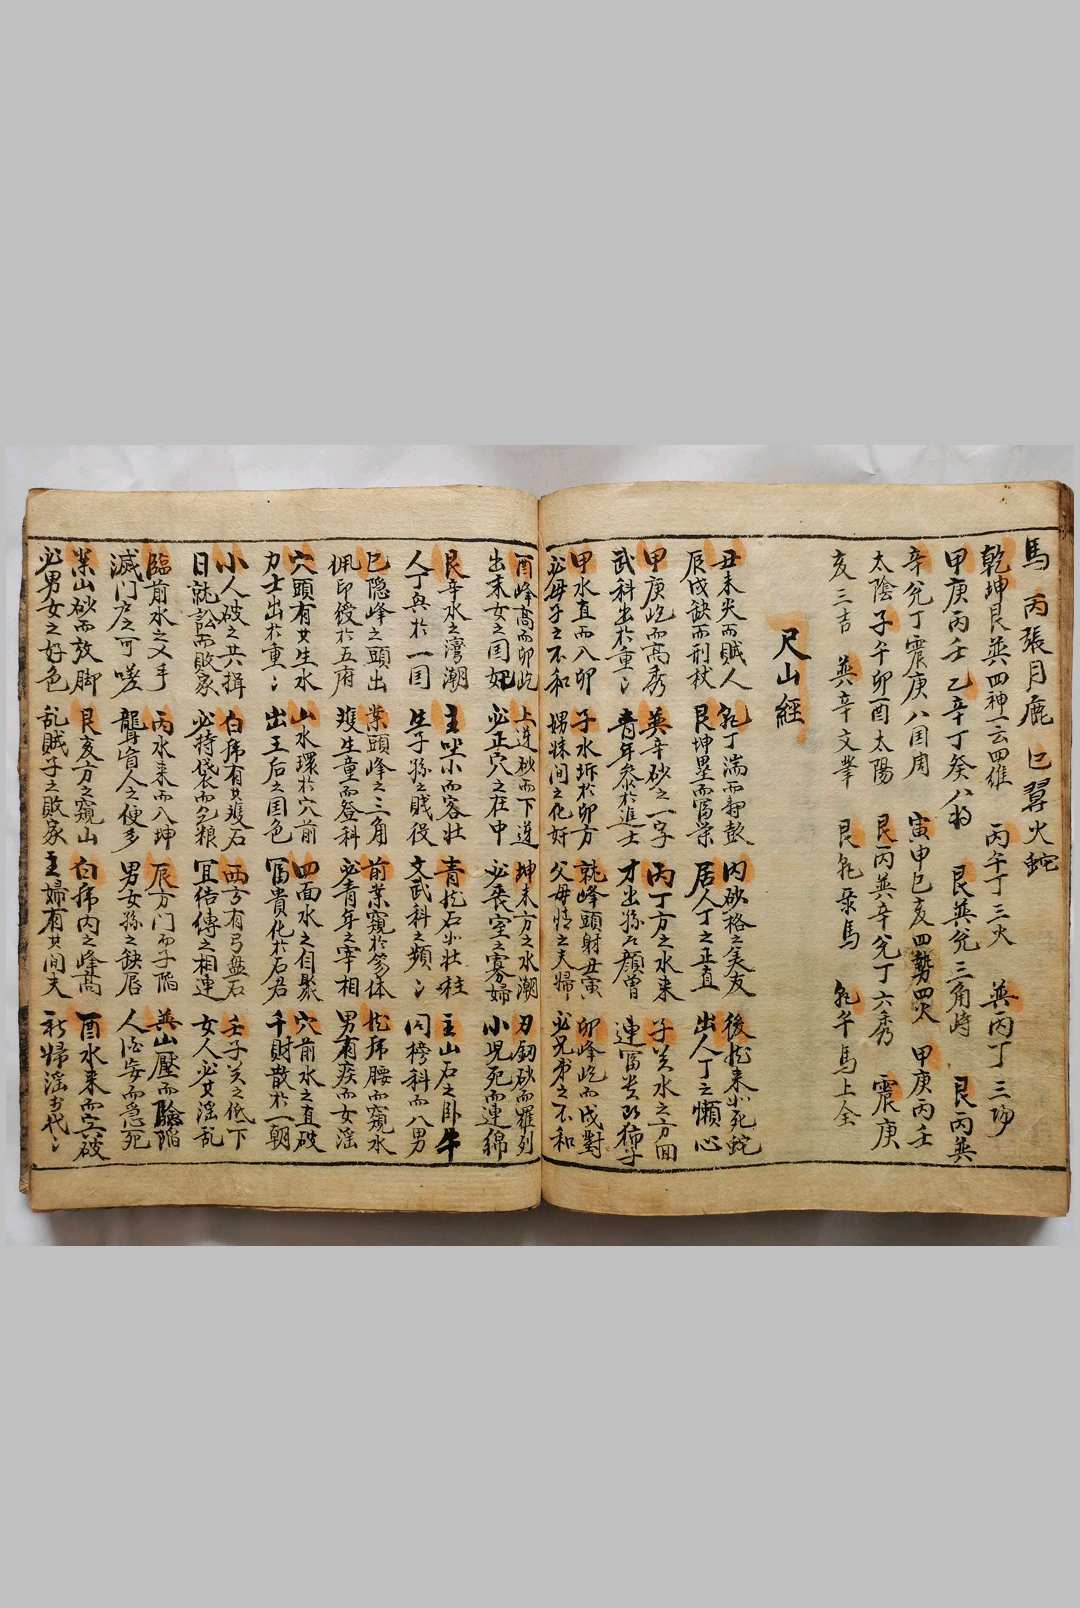 馬 丙張月鹿 巳翼火蛇
乾坤艮巽四神一云四維 丙午丁三火 巽丙丁三陽
甲庚丙壬 乙辛丁癸八將 艮巽兌三角峙 艮丙巽
辛兌丁震庚八国周 寅申巳亥四勢四火 甲庚丙壬
太陰 子午卯酉太陽 艮丙巽辛兌丁六秀 震庚
亥三吉 巽辛文峯 艮乾条馬 乾午馬上全
尺山經
丑未尖而賊人 乾丁湍而 丙砂格之美友 後龙来小死蛇
辰戌缺而刑杖 艮坤壘而富栄 居人丁之正直 出人丁之懶心
甲庚屹而高秀 巽辛砂之一字 丙丁方之水来 子癸水之方囬
武科出於重〻 青年参於進士 才出孫於顔曾 連富貴
甲水直而八卯 子水坼於卯方 乾峰頭射丑寅 卯峰屹而戌對
必母子之不和 娚妹间之化奸 父母情之夫婦 必兄弟之不和
酉峰高而卯屹 上逆砂而下逆 坤未方之水潮 刃釼砂而羅列
出末女之国妃 必正穴之在中 必喪室之寡婦 小児死而連綿
艮辛水之灣潮 主坐小而客壮 青龙石小壮柱 主山石之卧牛
人丁央於一国 生子孫之賎役 文武科之頻〻 同榜科而八男
巳隐峰之頭出 案頭峰之三角 前案窺於笏体 龙乕腰而窺水
佩印绶於五府 雙生童而登科 必青年之宰相 男有疾而女淫
穴頭有其生水 山水環於穴前 四面水之自聚 穴前水之直破
力士出於重〻 出王后之国色 冨貴化於石君 千財散於一朝
小人破之共揖 白乕有其雙石 西方有弓盤石 壬子癸之低下
日就訟而敗家 必持袋而乞粮 冝结傳之相連 女人必其淫乱
臨前水之叉手 丙水来而八坤 辰方门而子陷 巽山壓而陷
滅门户之可嗟 聾盲人之便多 男女孫之缺唇 人恠妄而急死
案山砂而放脚 艮亥方之窺山 白乕内之峰高 酉水来而穴破
必男女之好色 乱賊子之敗家 主婦有其间夫 新婦淫於代〻